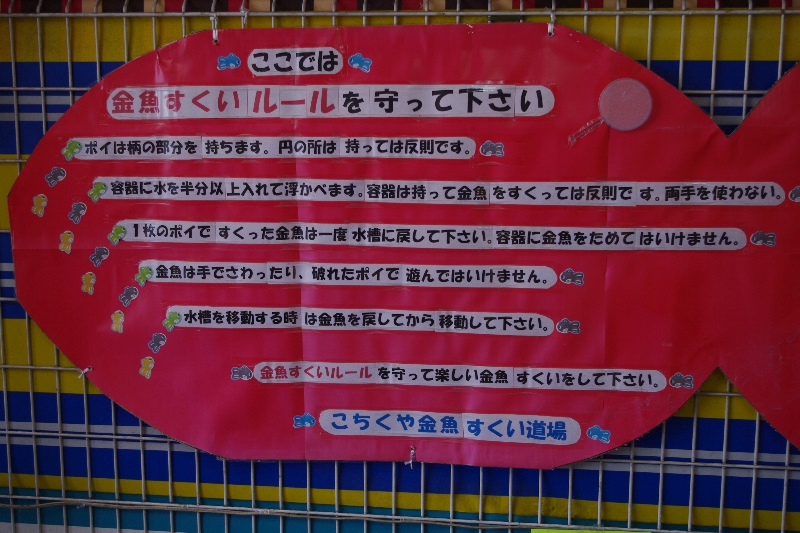 ここでは
金魚すくいルールを守って下さい
ポイは柄の部分を持ちます。円の所は持っては反則です。
容器に水を半分以上入れて浮かべます。容器は持って金魚をすくっては反則です。両手を使わない。
1枚のポイですくった金魚は一度水槽に戻して下さい。容器に金魚をためてはいけません。
金魚は手でさわったり、破れたポイで遊んではいけません。
水槽を移動する時は金魚を戻してから移動して下さい。
金魚すくいルールを守って楽しい金魚すくいをして下さい。
こちくや金魚すくい道場